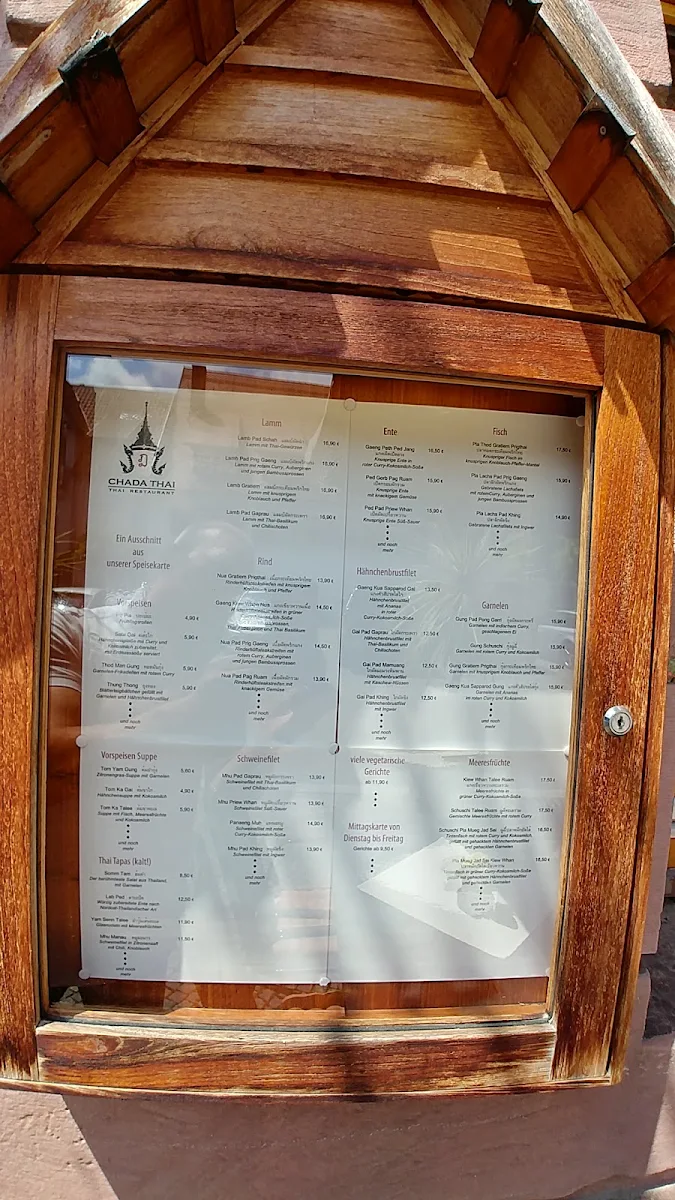 CHADA THAI
THAI RESTAURANT
Ein Ausschnitt
aus
unserer Speisekarte
Vorspeisen
4,90 €
Hähnchenspieße mit Curry und
Kokosmilch zubereitet
mit Erdnusssoße serviert
5,90 €
Thod Man Gung
Garnelen-Frikadellen mit rotem Curry
5,90 €
Thung Thong ถุงทอง
Blätterteigtäschchen gefüllt mit
Garnelen und Hähnchenbrustfilet
5,90 €
und noch
mehr
Vorspeisen Suppe
Tom Yam Gung
Zitronengras-Suppe mit Garnelen
5,60 €
Tom Ka Gai
Hähnchensuppe mit Kokosmilch
4,90 €
Tom Ka Talee
Suppe mit Fisch, Meeresfrüchte
und Kokosmilch
5,90 €
und noch
mehr
Thai Tapas (kalt!)
Somm Tam ส้มตำ
Der berühmteste Salat aus Thailand,
mit Garnelen
8,50 €
Lab Ped ลาบเป็ด
Würzig zubereitete Ente nach
Nordost-Thailändischer Art
12,50 €
Yam Senn Talee
Glasnudeln mit Meeresfrüchten
11,90 €
Mhu Manau หมูมะนาว
Schweinefilet in Zitronensaft
mit Chili, Knoblauch
11,50 €
und noch
mehr
Lamm
Lamm mit Thai-Gewürzen
16,90 €
Lamb Pad Prig Gaeng
Lamm mit rotem Curry, Auberginen
und jungen Bambussprossen
16,90 €
Lamb Gratiem
Lamm mit knusprigem
Knoblauch und Pfeffer
16,90 €
Lamb Pad Gaprau
Lamm mit Thai-Basilikum
und Chilischoten
16,90 €
Rind
Nua Gratiem Prigthai
Rinderhüftsteakstreifen mit knusprigem
Knoblauch und Pfeffer
13,90 €
Gaeng Kiew Whan Nua
in grüner
Curry-Kokosmilch-Soße
und Thai-Basilikum
14,50 €
Nua Pad Prig Gaeng
Rinderhüftsteakstreifen mit
rotem Curry, Auberginen
und jungen Bambussprossen
14,50 €
Nua Pad Pag Ruam
Rinderhüftsteakstreifen mit
knackigem Gemüse
13,90 €
und noch
mehr
Schweinefilet
Mhu Pad Gaprau
Schweinefilet mit Thai-Basilikum
und Chilischoten
13,90 €
Mhu Priew Whan
Schweinefilet Süß-Sauer
13,90 €
Panaeng Muh
Schweinefilet mit roter
Curry-Kokosmilch-Soße
14,90 €
Mhu Pad Khing
Schweinefilet mit Ingwer
13,90 €
und noch
mehr
Ente
Gaeng Peth Ped Jang
Knusprige Ente in
roter Curry-Kokosmilch-Soße
16,50 €
Ped Gerb Pag Ruam
Knusprige Ente
mit knackigem Gemüse
15,90 €
Ped Pad Priew Whan
Knusprige Ente Süß-Sauer
15,90 €
und noch
mehr
Hähnchenbrustfilet
Gaeng Kua Sapparod Gai
Hähnchenbrustfilet
mit Ananas
in roter
Curry-Kokosmilch-Soße
13,50 €
Gai Pad Gaprau
Hähnchenbrustfilet
mit Thai-Basilikum und
Chilischoten
12,50 €
Gai Pad Mamuang
Hähnchenbrustfilet
mit Kaschew-Nüssen
13,50 €
Gai Pad Khing ไก่ผัดขิง
Hähnchenbrustfilet
mit Ingwer
12,50 €
und noch
mehr
viele vegetarische
Gerichte
ab 11,90 €
Mittagskarte von
Dienstag bis Freitag
Gerichte ab 8,50 €
Fisch
Pla Thod Gratiem Prigthai
Knuspriger Fisch im
knusprigen Knoblauch-Pfeffer-Mantel
17,50 €
Pla Lachs Pad Prig Gaeng
Gebratene Lachsfilets
mit rotem Curry, Auberginen und
jungen Bambussprossen
15,90 €
Pla Lachs Pad Khing
Gebratene Lachsfilets mit Ingwer
14,90 €
und noch
mehr
Garnelen
Gung Pad Pong Garri
Garnelen mit indischem Curry,
geschlagenen Ei
15,90 €
Gung Schuschi กุ้งฉู่ฉี่
Garnelen mit rotem Curry und Kokosmilch
15,90 €
Gung Gratiem Prigthai
Garnelen mit knusprigem Knoblauch und Pfeffer
15,90 €
Gaeng Kua Sapparod Gung
Garnelen mit Ananas
im roten Curry und Kokosmilch
15,90 €
und noch
mehr
Meeresfrüchte
Kiew Whan Talee Ruam
Meeresfrüchte in
grüner Curry-Kokosmilch-Soße
17,50 €
Schuschi Talee Ruam
Gemischte Meeresfrüchte mit rotem Curry
17,50 €
Schuschi Pla Mueg Jad Sai
Tintenfisch in rotem Curry und Kokosmilch,
gefüllt mit gehacktem Hähnchenbrustfilet
und gehackten Garnelen
18,50 €
Pla Mueg Jad Sai Kiew Whan
Tintenfisch in grüner Curry-Kokosmilch-Soße
gefüllt mit gehacktem Hähnchenbrustfilet
und gehackten Garnelen
18,50 €
und noch
mehr